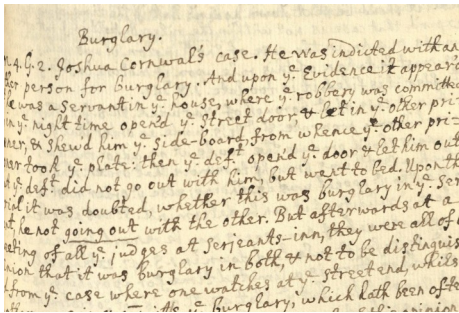 Burglary.
G. 2. Joshua Cornwal's case. He was indicted with an
her person for burglary. And upon yᵉ Evidence it appeard
he was a servant in yᵉ house, where yᵉ robbery was committed
in yᵉ night time open'd yᵉ street door, & let in yᵉ other pri-
ner, & shew'd him yᵉ side-board from whence yᵉ other pri-
ner took yᵉ plate: then yᵉ defᵗ. open'd yᵉ door & let him out
yᵉ defᵗ. did not go out with him, but went to bed. Upon the
it was doubted, whether this was burglary in yᵉ ser
nt, he not going out with the other. But afterwards at a
eeting of all yᵉ judges at Serjeants-inn, they were all of o
nion that it was burglary in both, & not to be distinguis
d from yᵉ case where one watches at yᵉ street end, whils
yᵉ burglary, which hath been ofte
this opinion